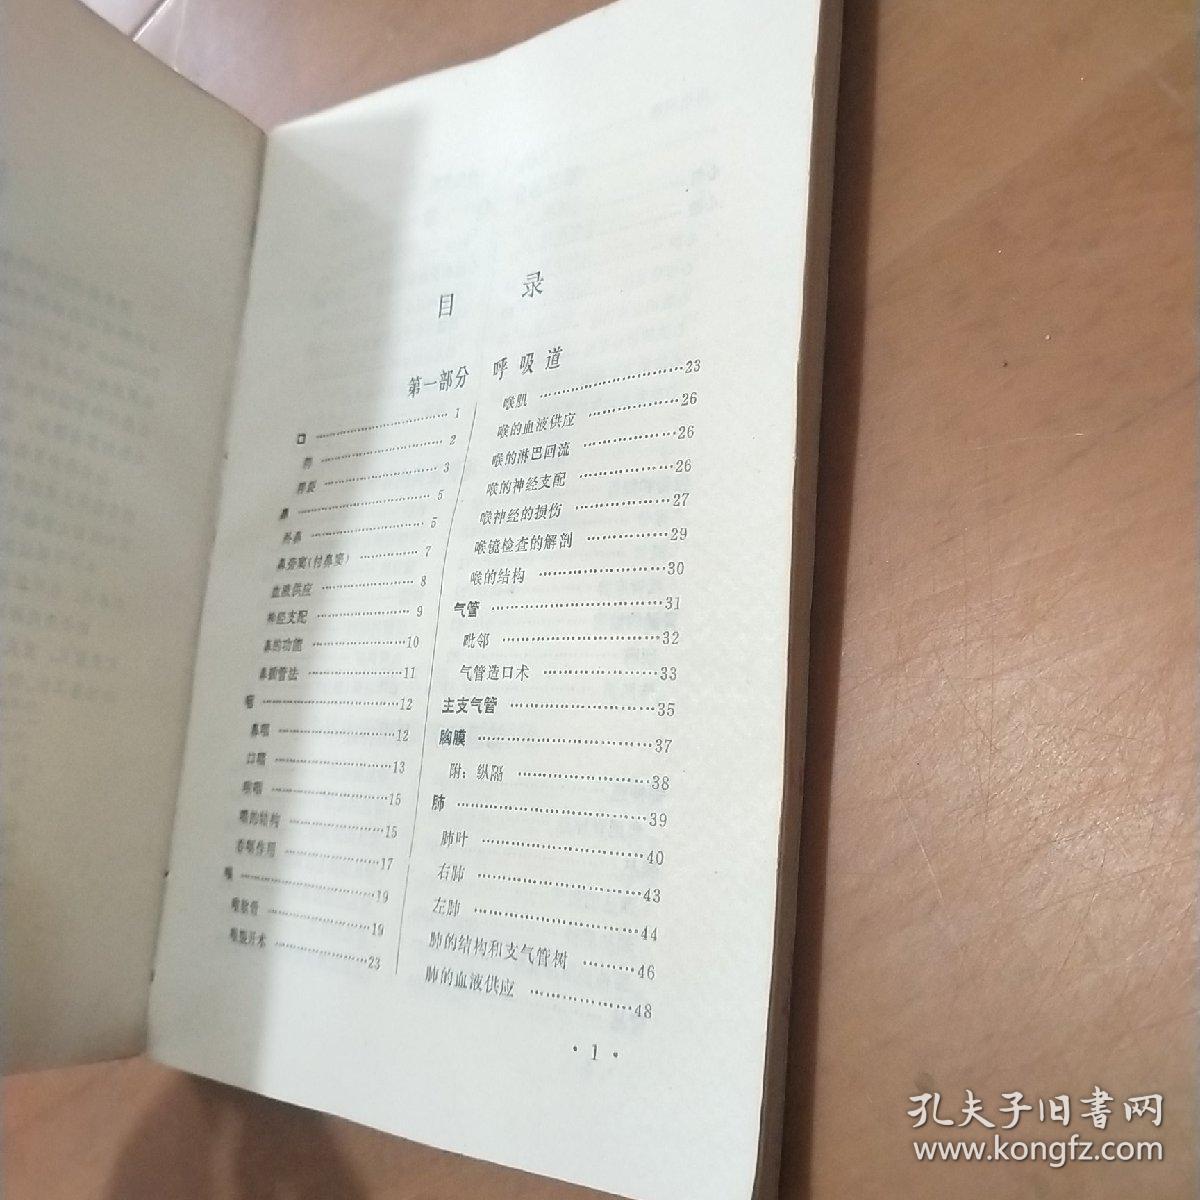 目 录
第一部分 呼吸道
口 1
腭 2
腭裂 3
鼻 5
外鼻 5
鼻旁窦(付鼻窦) 7
血液供应 8
神经支配 9
鼻的功能 10
鼻额管法 11
咽 12
鼻咽 12
口咽 13
喉咽 15
咽的结构 15
吞咽作用 17
喉 19
喉软骨 19
喉裂开术 23
喉肌 23
喉的血液供应 26
喉的淋巴回流 26
喉的神经支配 26
喉神经的损伤 27
喉镜检查的解剖 29
喉的结构 30
气管 31
毗邻 32
气管造口术 33
主支气管 35
胸膜 37
附：纵隔 38
肺 39
肺叶 40
右肺 43
左肺 44
肺的结构和支气管树 46
肺的血液供应 48
· 1 ·
孔夫子旧书网
www.kongfz.com